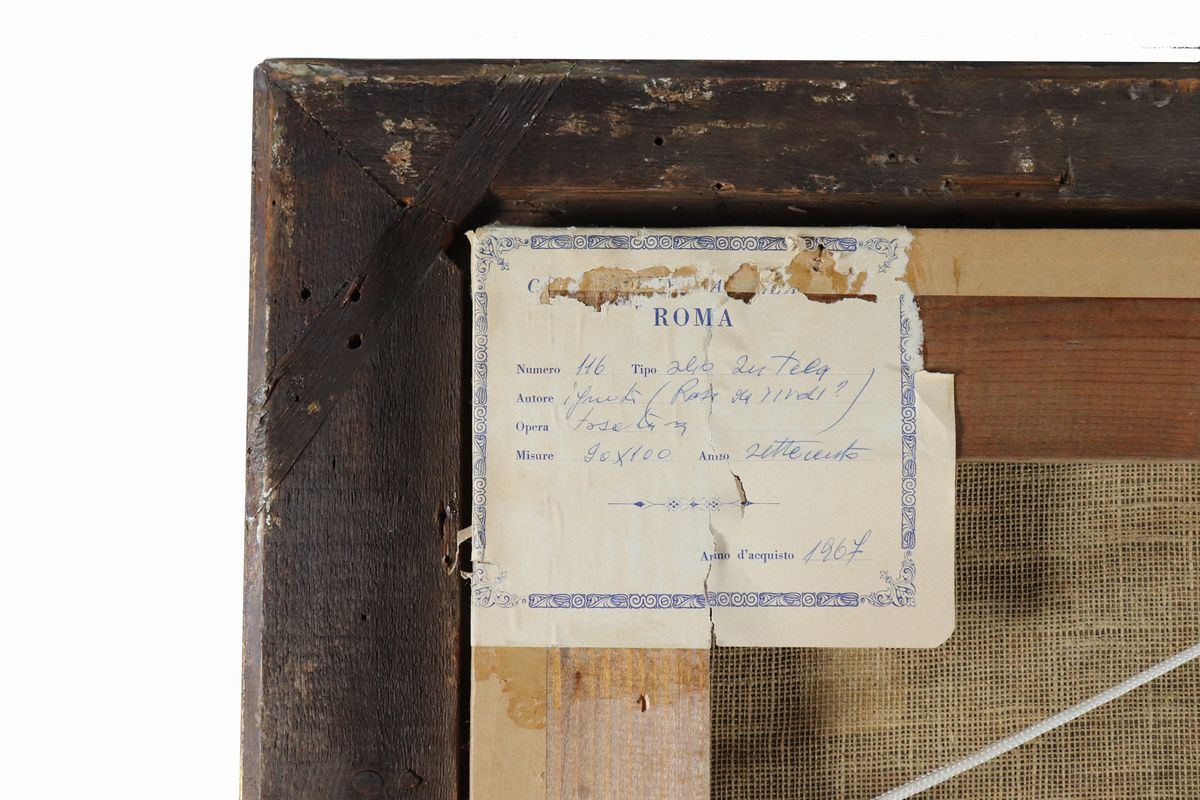 ROMA
Numero 116 Tipo olio su tela
Autore (Rosa da Tivoli?)
Opera
Misure 90x100 Anno settecento
Anno d'acquisto 1967